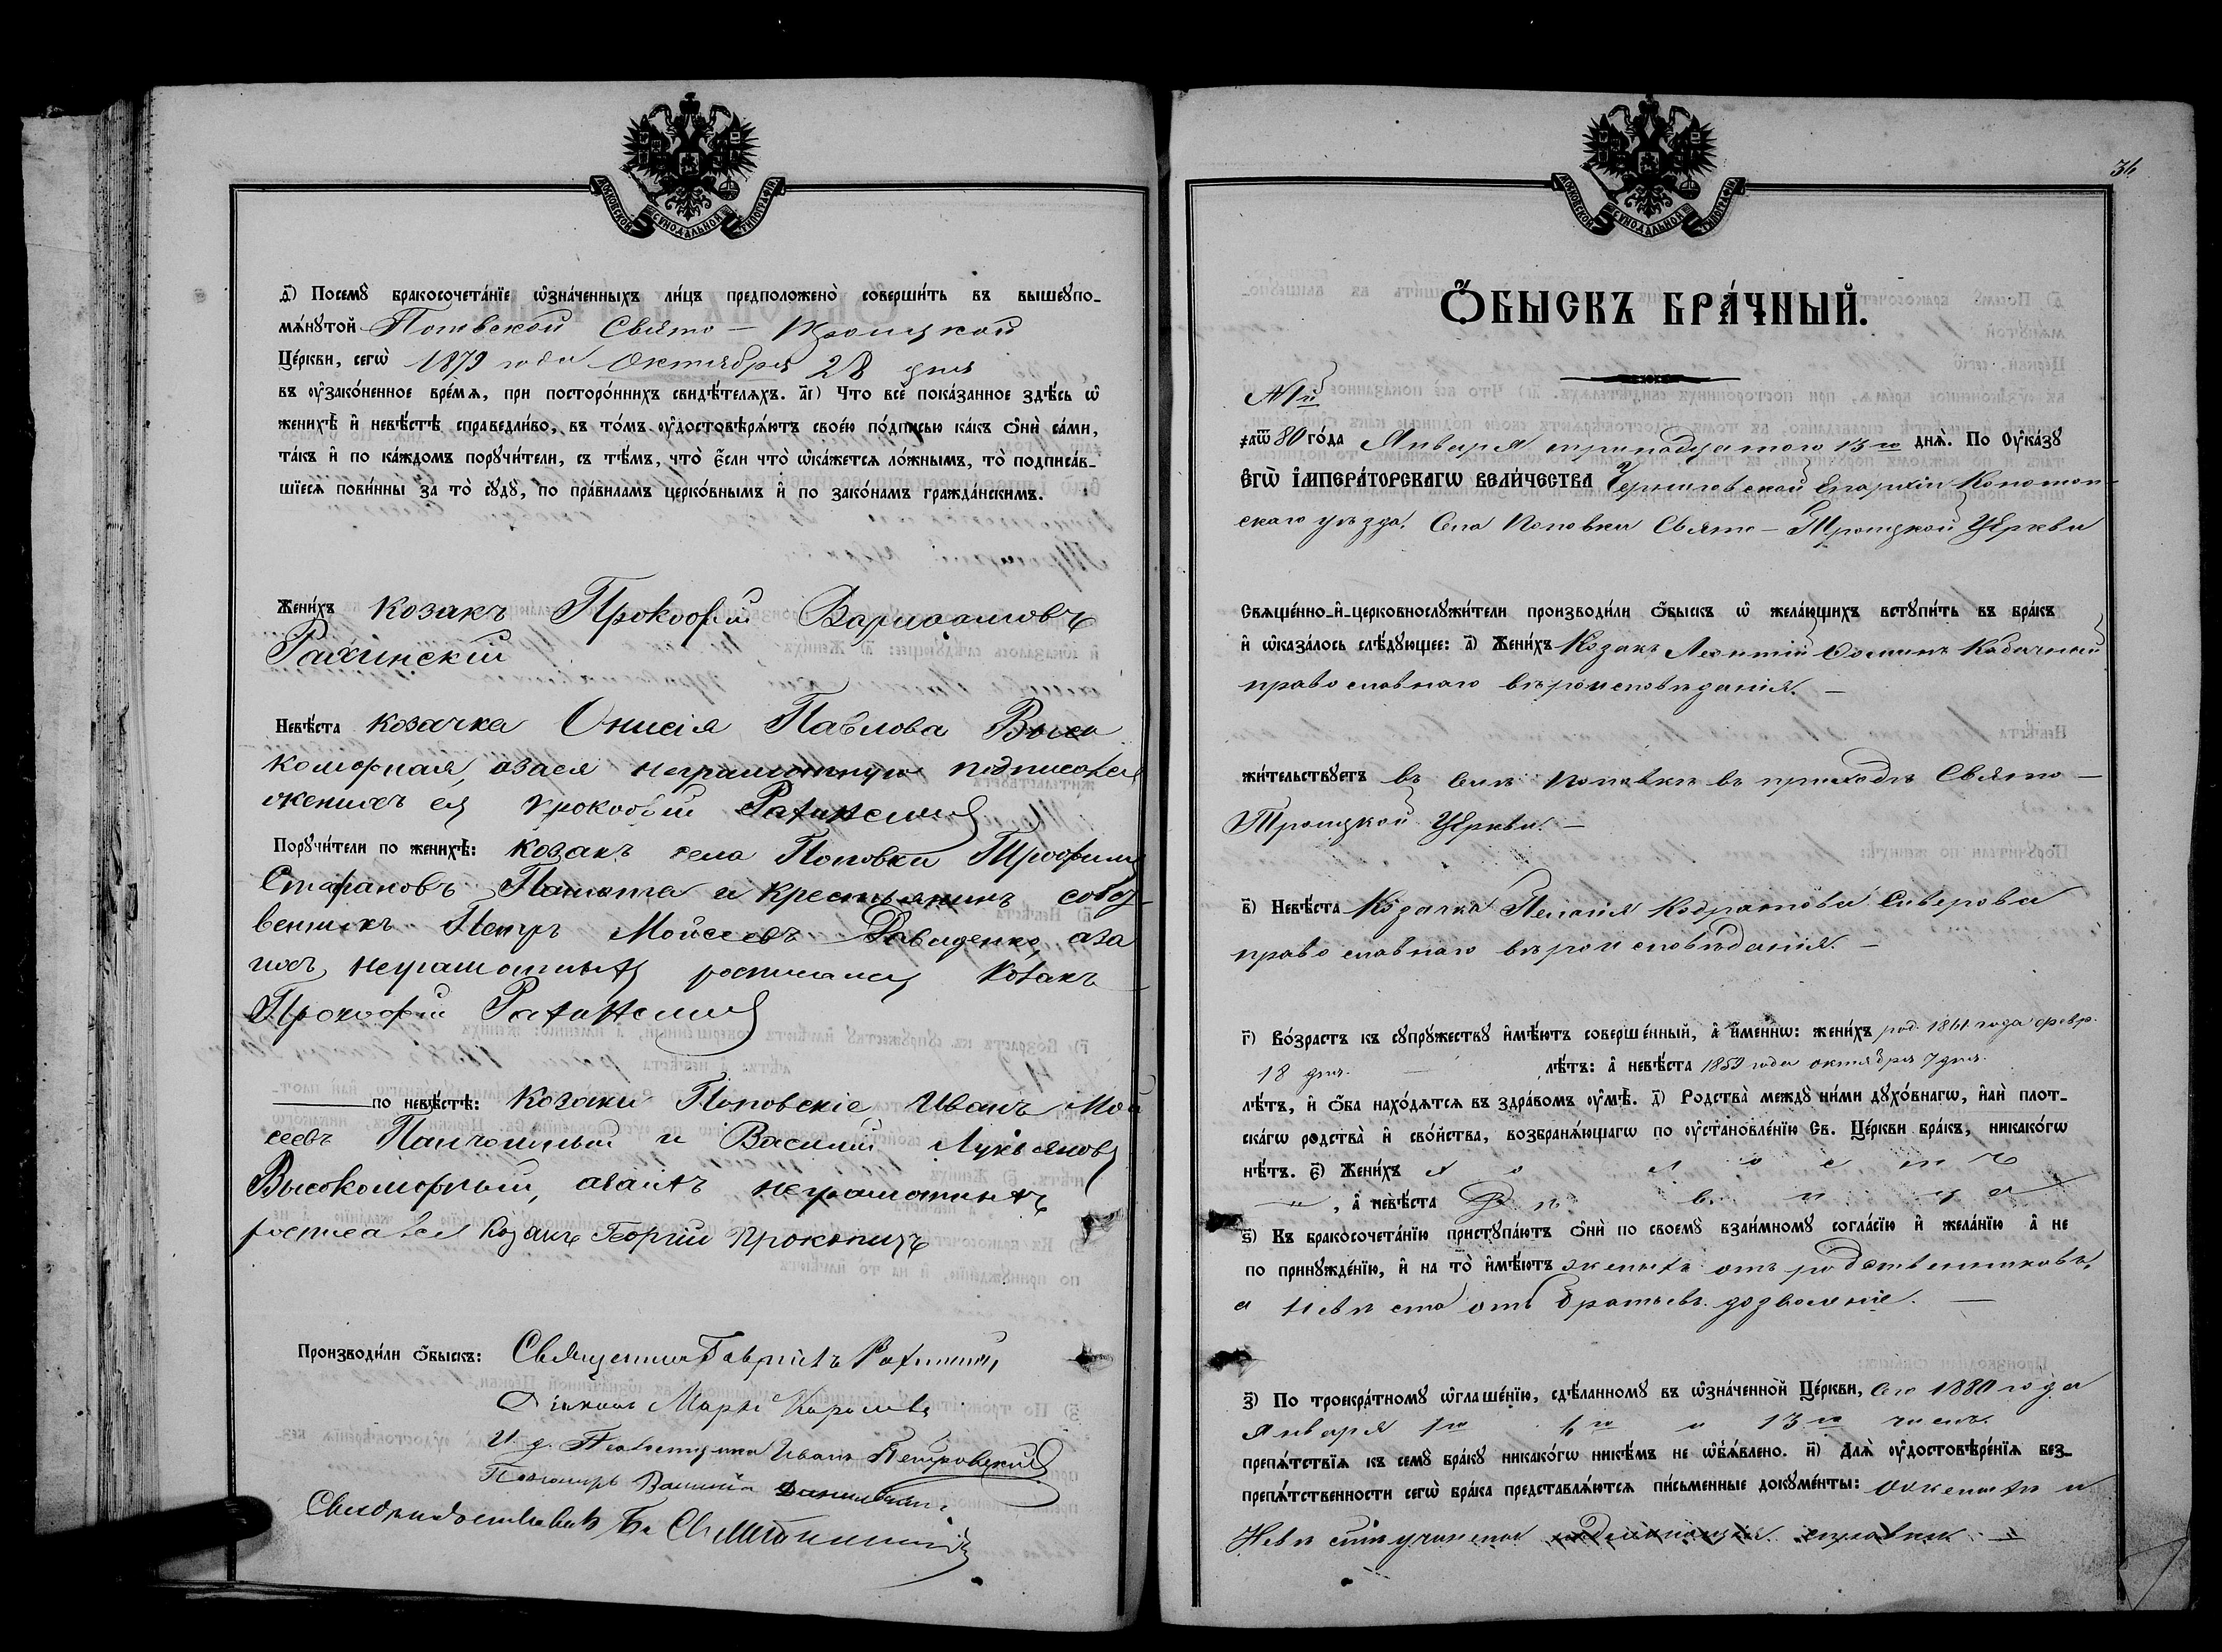 МОСКОВСКОЙ СѴНОДАЛЬНОЙ ТИПОГРАФІИ
Посемꙋ̀ бракосочета́нїе ѡ҆зна́ченныхъ ли́цъ предположено̀ соверши́ть въ вышеꙋпо-
мѧ́нꙋтой Поповской Свято - Троицкой
Це́ркви, сегѡ̀ 1879 года Октября 28 дня
въ ᲂу҆зако́ненное вре́мѧ, при посторо́ннихъ свидѣ́телѧхъ. а҃і) Что всѐ пока́занное здѣ́сь ѡ҆
женихѣ̀ и҆ невѣ́стѣ справедли́во, въ то́мъ ᲂу҆достовѣрѧ́ютъ свое́ю по́дписью ка́къ ѻ҆нѝ са́ми,
та́къ и҆ по ка́ждомъ порꙋчи́тели, съ тѣ́мъ, что̀ є҆́сли что̀ ѡ҆ка́жетсѧ ло́жнымъ, то̀ подписа́в-
шїесѧ пови́нны за то̀ сꙋдꙋ̀, по пра́виламъ церко́внымъ и҆ по зако́намъ гражда́нскимъ.
Жени́хъ Козакъ Прокофій Варлаамовъ
Рахинскій
Невѣ́ста козачка Онисія Павлова Высо
коморная, азася неграмотную подписался
женихъ ея Прокофій Рахинскій
Порꙋчи́тели по женихѣ̀: козакъ села Поповки Трофимъ
Стефановъ и крестьянинъ собст
венникъ Петръ Мойсеевъ Давиденко, аза
нихъ неграмотныхъ росписался козакъ
Прокофій Рахинскій
по невѣ́стѣ: козаки Поповскіе Иванъ Мой
сеевъ и Василій Лукьяновъ
Высокоморный, азанихъ неграмотныхъ
росписался козакъ Георгій Прокопичъ
Производи́ли ѻ҆́быскъ: Священникъ Гавріилъ Рахинскій
Діаконъ Маркъ
И. д. Псаломщика Иванъ Петровскій
Пономарь Василій
36
Ѻ҆́БЫСКЪ БРА́ЧНЫЙ.
№ 1й
҂аѿ 80 го́да Января тринадцатого 13го днѧ̀. По Оу҆ка́зꙋ
Є҆ГѠ̀ І҆МПЕРА́ТОРСКАГѠ ВЕЛИ́ЧЕСТВА Черниговской Епархіи Конотоп-
скаго уѣзда. Села Поповки Свято - Троицкой Церкви
Свѧще́нно-и҆-церковнослꙋжи́тели производи́ли ѻ҆́быскъ ѡ҆ жела́ющихъ встꙋпи́ть въ бра́къ
и҆ ѡ҆каза́лось слѣ́дꙋющее: а҃) Жени́хъ Козакъ Леонтій Фоминъ Кабачный
православнаго вѣроисповѣданія. -
жи́тельствꙋетъ въ Селѣ Поповкѣ въ приходѣ Свято -
Троицкой Церкви. -
в҃) Невѣ́ста Козачка Пелагія Кодратова Сиверова
православнаго вѣроисповѣданія. -
г҃) Во́зрастъ къ сꙋпрꙋ́жествꙋ и҆мѣ́ютъ соверше́нный, а҆ и҆́менно: жени́хъ род. 1861 года февр.
18 дня. - лѣ́тъ: а҆ невѣ́ста 1859 года октября 7 дня.
лѣ́тъ, и҆ ѻ҆́ба нахо́дѧтсѧ въ здра́вомъ ᲂу҆мѣ̀. д҃) Родства̀ междꙋ̀ ни́ми дꙋхо́внагѡ, и҆лѝ плот-
ска́гѡ родства̀ и҆ сво́йства, возбранѧ́ющагѡ по ᲂу҆становле́нїю Св. Це́ркви бра́къ, никако́гѡ
нѣ́тъ. є҃) Жени́хъ холостъ
, а҆ невѣ́ста дѣвица
ѕ҃) Къ бракосочета́нїю пристꙋпа́ютъ ѻ҆нѝ по своемꙋ̀ взаи́мномꙋ согла́сїю и҆ жела́нїю а҆ не
по принꙋжде́нїю, и҆ на то̀ и҆мѣ́ютъ женихъ отъ родственниковъ,
а невѣста отъ братьевъ дозволеніе. -
з҃) По троекра́тномꙋ ѡ҆глаше́нїю, сдѣ́ланномꙋ въ ѡ҆зна́ченной Це́ркви, сего 1880 года
Января 1го 6го и 13го чиселъ.
препѧ́тствїѧ къ семꙋ̀ бра́кꙋ никако́гѡ никѣ́мъ не ѡ҆б̾ѧ́влено. и҃) Длѧ̀ ᲂу҆достовѣре́нїѧ без-
препѧ́тственности сегѡ̀ бра́ка представлѧ́ютсѧ пи́сьменные докꙋме́нты: О женихѣ и
Невѣстѣ учинена справка. -